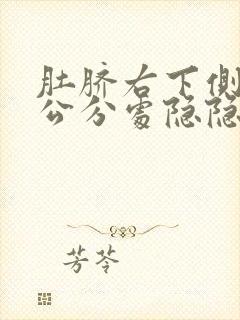 肚脐右下侧
公分处隐隐
芳苓